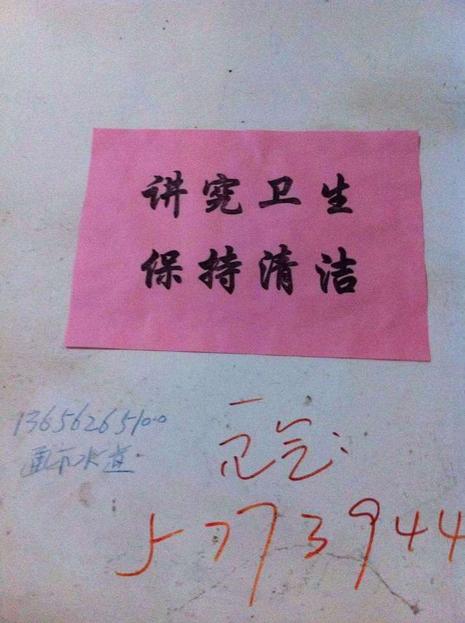 讲究卫生
保持清洁
13656265100
通下水道
5773944